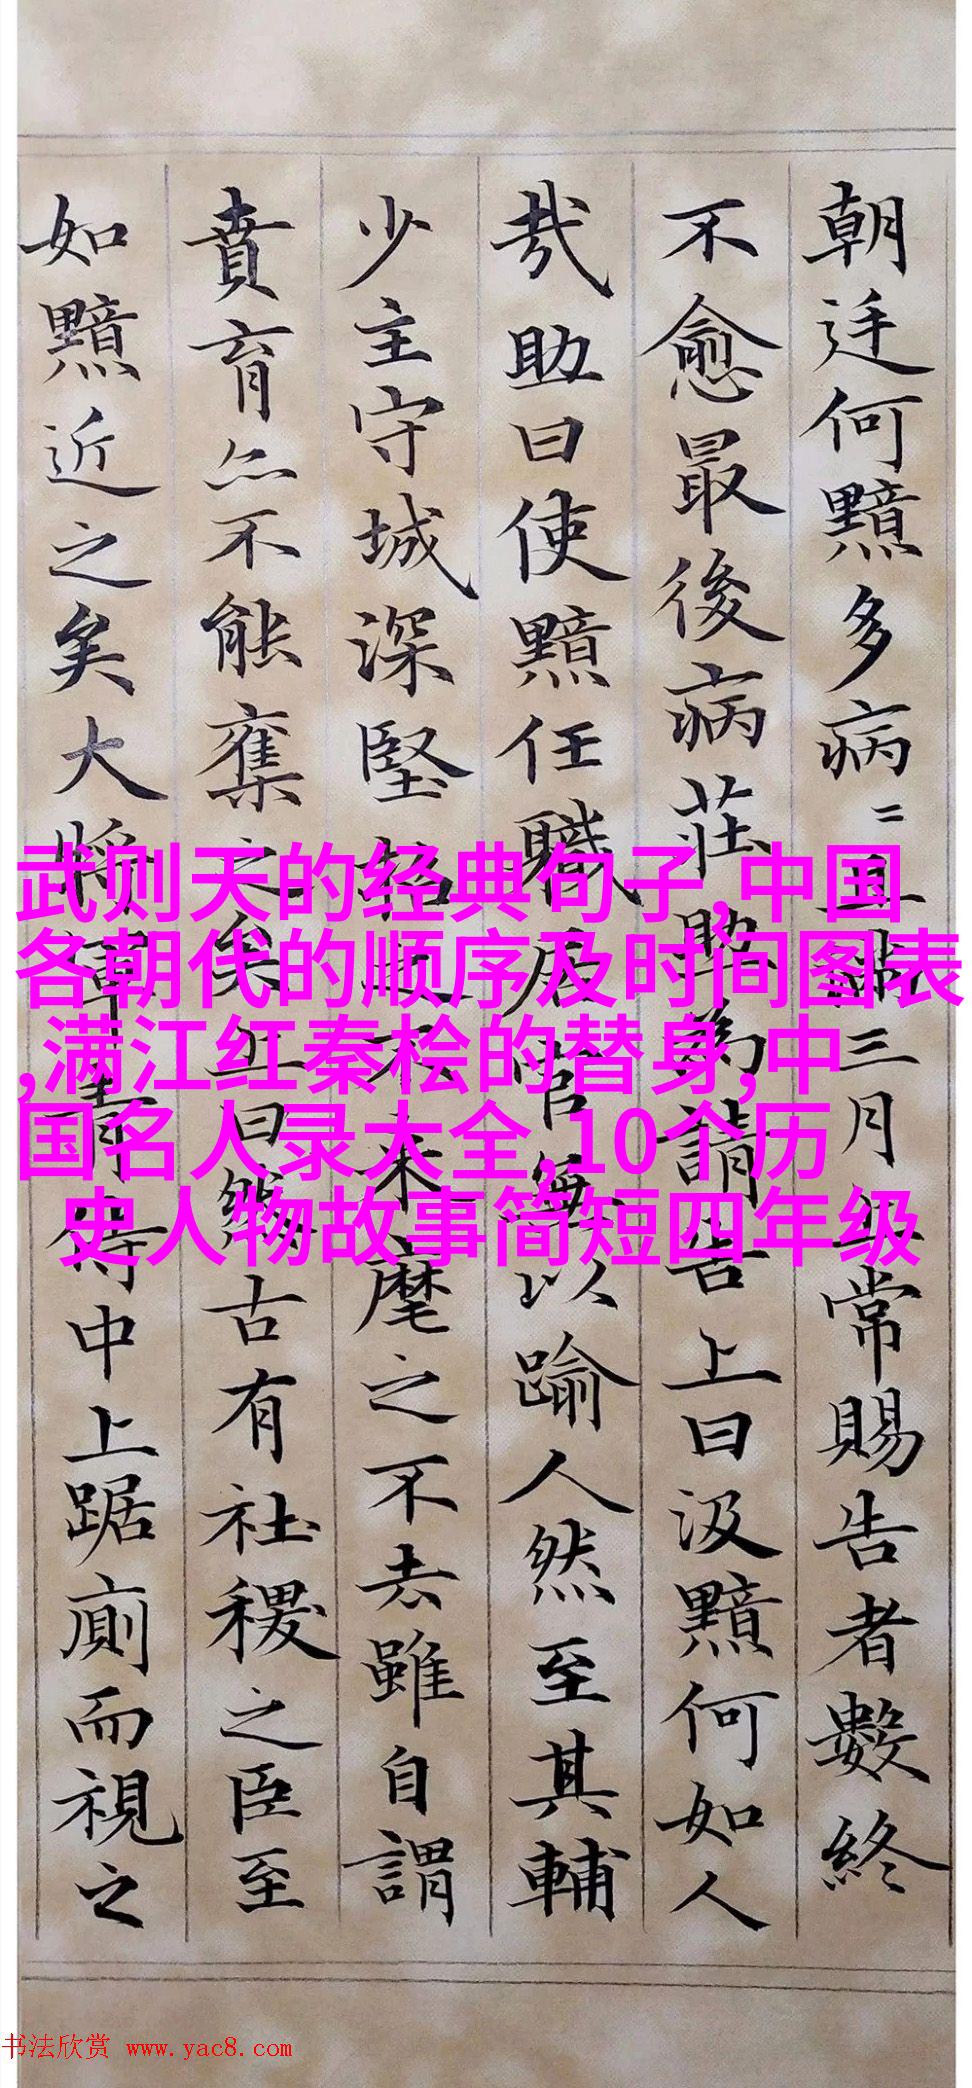 朝廷何黯多病〻且滿三月上常賜告者數終
不愈最後病莊助為請告上曰汲黯何如人
哉助曰使黯任職居官無以踰人然至其輔
少主守城深堅招之不來麾之不去雖自謂
賁育亦不能奪之矣上曰然古有社稷之臣至
如黯近之矣大將軍青侍中上踞廁而視之
武则天的经典句子,中国
各朝代的顺序及时间图表
,满江红秦桧的替身,中
国名人录大全,10个历
史人物故事简短四年级
书法欣赏 www.yac8.com